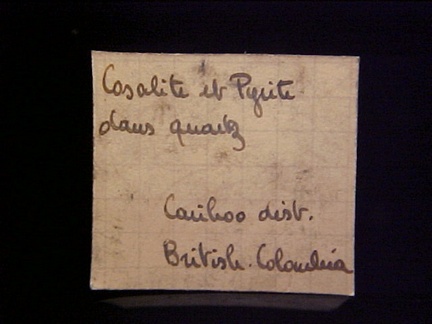 Cosalite et Pyrite
dans quartz
Cariboo dist.
British. Colombia